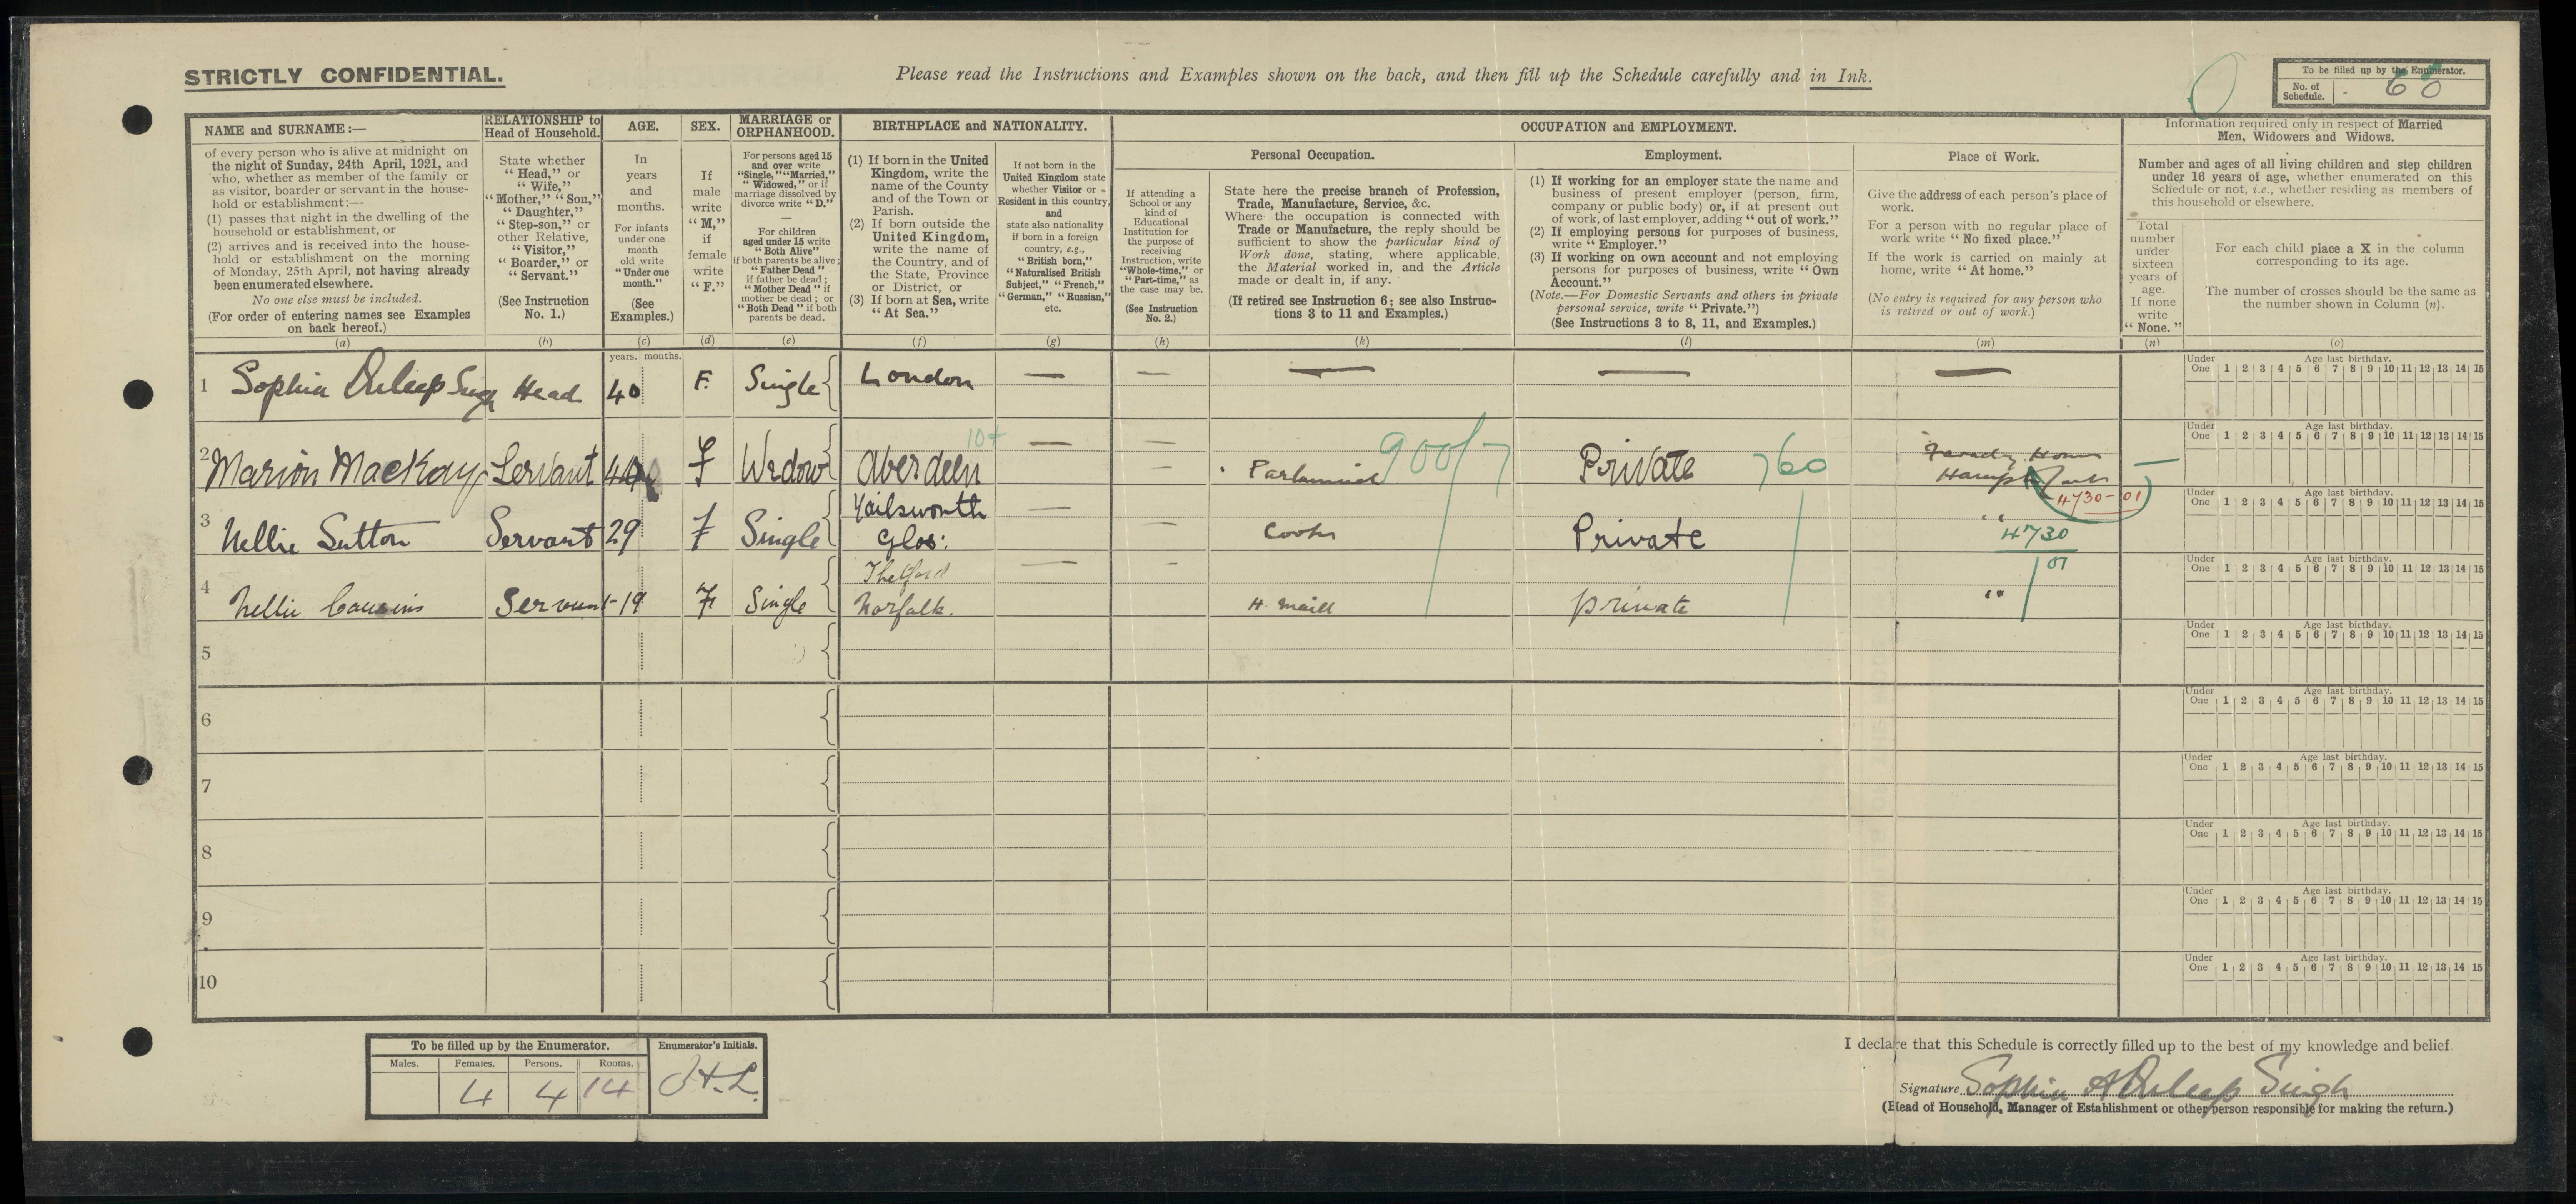 STRICTLY CONFIDENTIAL.
Please read the Instructions and Examples shown on the back, and then fill up the Schedule carefully and in Ink.
To be filled up by the Enumerator.
No. of Schedule. 60
NAME and SURNAME:—
of every person who is alive at midnight on
the night of Sunday, 24th April, 1921, and
who, whether as member of the family or
as visitor, boarder or servant in the house-
hold or establishment:—
(1) passes that night in the dwelling of the
household or establishment, or
(2) arrives and is received into the house-
hold or establishment on the morning
of Monday, 25th April, not having already
been enumerated elsewhere.
No one else must be included.
(For order of entering names see Examples
on back hereof.)
(a)
RELATIONSHIP to
Head of Household.
State whether
"Head," or
"Wife,"
"Mother," "Son,"
"Daughter,"
"Step-son," or
other Relative,
"Visitor,"
"Boarder," or
"Servant."
(See Instruction
No. 1.)
(b)
AGE.
In
years
and
months.
For infants
under one
month
old write
"Under one
month."
(See
Examples.)
(c)
SEX.
If
male
write
"M,"
if
female
write
"F."
(d)
MARRIAGE or
ORPHANHOOD.
For persons aged 15
and over write
"Single," "Married,"
"Widowed," or if
marriage dissolved by
divorce write "D."
—
For children
aged under 15 write
"Both Alive"
if both parents be alive;
"Father Dead"
if father be dead;
"Mother Dead" if
mother be dead; or
"Both Dead" if both
parents be dead.
(e)
BIRTHPLACE and NATIONALITY.
(1) If born in the United
Kingdom, write the
name of the County
and of the Town or
Parish.
(2) If born outside the
United Kingdom,
write the name of
the Country, and of
the State, Province
or District, or
(3) If born at Sea, write
"At Sea."
(f)
If not born in the
United Kingdom state
whether Visitor or
Resident in this country,
and
state also nationality
if born in a foreign
country, e.g.,
"British born,"
"Naturalised British
Subject," "French,"
"German," "Russian,"
etc.
(g)
OCCUPATION and EMPLOYMENT.
Personal Occupation.
If attending a
School or any
kind of
Educational
Institution for
the purpose of
receiving
Instruction, write
"Whole-time," or
"Part-time," as
the case may be.
(See Instruction
No. 2.)
(h)
State here the precise branch of Profession,
Trade, Manufacture, Service, &c.
Where the occupation is connected with
Trade or Manufacture, the reply should be
sufficient to show the particular kind of
Work done, stating, where applicable,
the Material worked in, and the Article
made or dealt in, if any.
(If retired see Instruction 6; see also Instruc-
tions 3 to 11 and Examples.)
(k)
Employment.
(1) If working for an employer state the name and
business of present employer (person, firm,
company or public body) or, if at present out
of work, of last employer, adding "out of work."
(2) If employing persons for purposes of business,
write "Employer."
(3) If working on own account and not employing
persons for purposes of business, write "Own
Account."
(Note.—For Domestic Servants and others in private
personal service, write "Private.")
(See Instructions 3 to 8, 11, and Examples.)
(l)
Place of Work.
Give the address of each person's place of
work.
For a person with no regular place of
work write "No fixed place."
If the work is carried on mainly at
home, write "At home."
(No entry is required for any person who
is retired or out of work.)
(m)
Information required only in respect of Married
Men, Widowers and Widows.
Number and ages of all living children and step children
under 16 years of age, whether enumerated on this
Schedule or not, i.e., whether residing as members of
this household or elsewhere.
Total
number
under
sixteen
years of
age.
If none
write
"None."
(n)
For each child place a X in the column
corresponding to its age.
The number of crosses should be the same as
the number shown in Column (n).
(o)
years. months.
1 Sophia Duleep Singh Head 40 F. Single London — — — — —
Under One Age last birthday. 1 2 3 4 5 6 7 8 9 10 11 12 13 14 15
10+
2 Marion MacKay Servant 44 F Widow Aberdeen — — 900/7 Private 760 Faraday House
Hampton —
(4730-01)
Under One Age last birthday. 1 2 3 4 5 6 7 8 9 10 11 12 13 14 15
3 Nellie Sutton Servant 29 F Single Glos: — — Cook Private " 4730
01
Under One Age last birthday. 1 2 3 4 5 6 7 8 9 10 11 12 13 14 15
4 Nellie Cousins Servant 19 F Single Thetford
Norfolk. — — H. Maid private "
Under One Age last birthday. 1 2 3 4 5 6 7 8 9 10 11 12 13 14 15
5
Under One Age last birthday. 1 2 3 4 5 6 7 8 9 10 11 12 13 14 15
6
Under One Age last birthday. 1 2 3 4 5 6 7 8 9 10 11 12 13 14 15
7
Under One Age last birthday. 1 2 3 4 5 6 7 8 9 10 11 12 13 14 15
8
Under One Age last birthday. 1 2 3 4 5 6 7 8 9 10 11 12 13 14 15
9
Under One Age last birthday. 1 2 3 4 5 6 7 8 9 10 11 12 13 14 15
10
Under One Age last birthday. 1 2 3 4 5 6 7 8 9 10 11 12 13 14 15
To be filled up by the Enumerator.
Males. Females. Persons. Rooms.
4 4 14
Enumerator's Initials.
H.L.
I declare that this Schedule is correctly filled up to the best of my knowledge and belief.
Signature Sophia A Duleep Singh
(Head of Household, Manager of Establishment or other person responsible for making the return.)